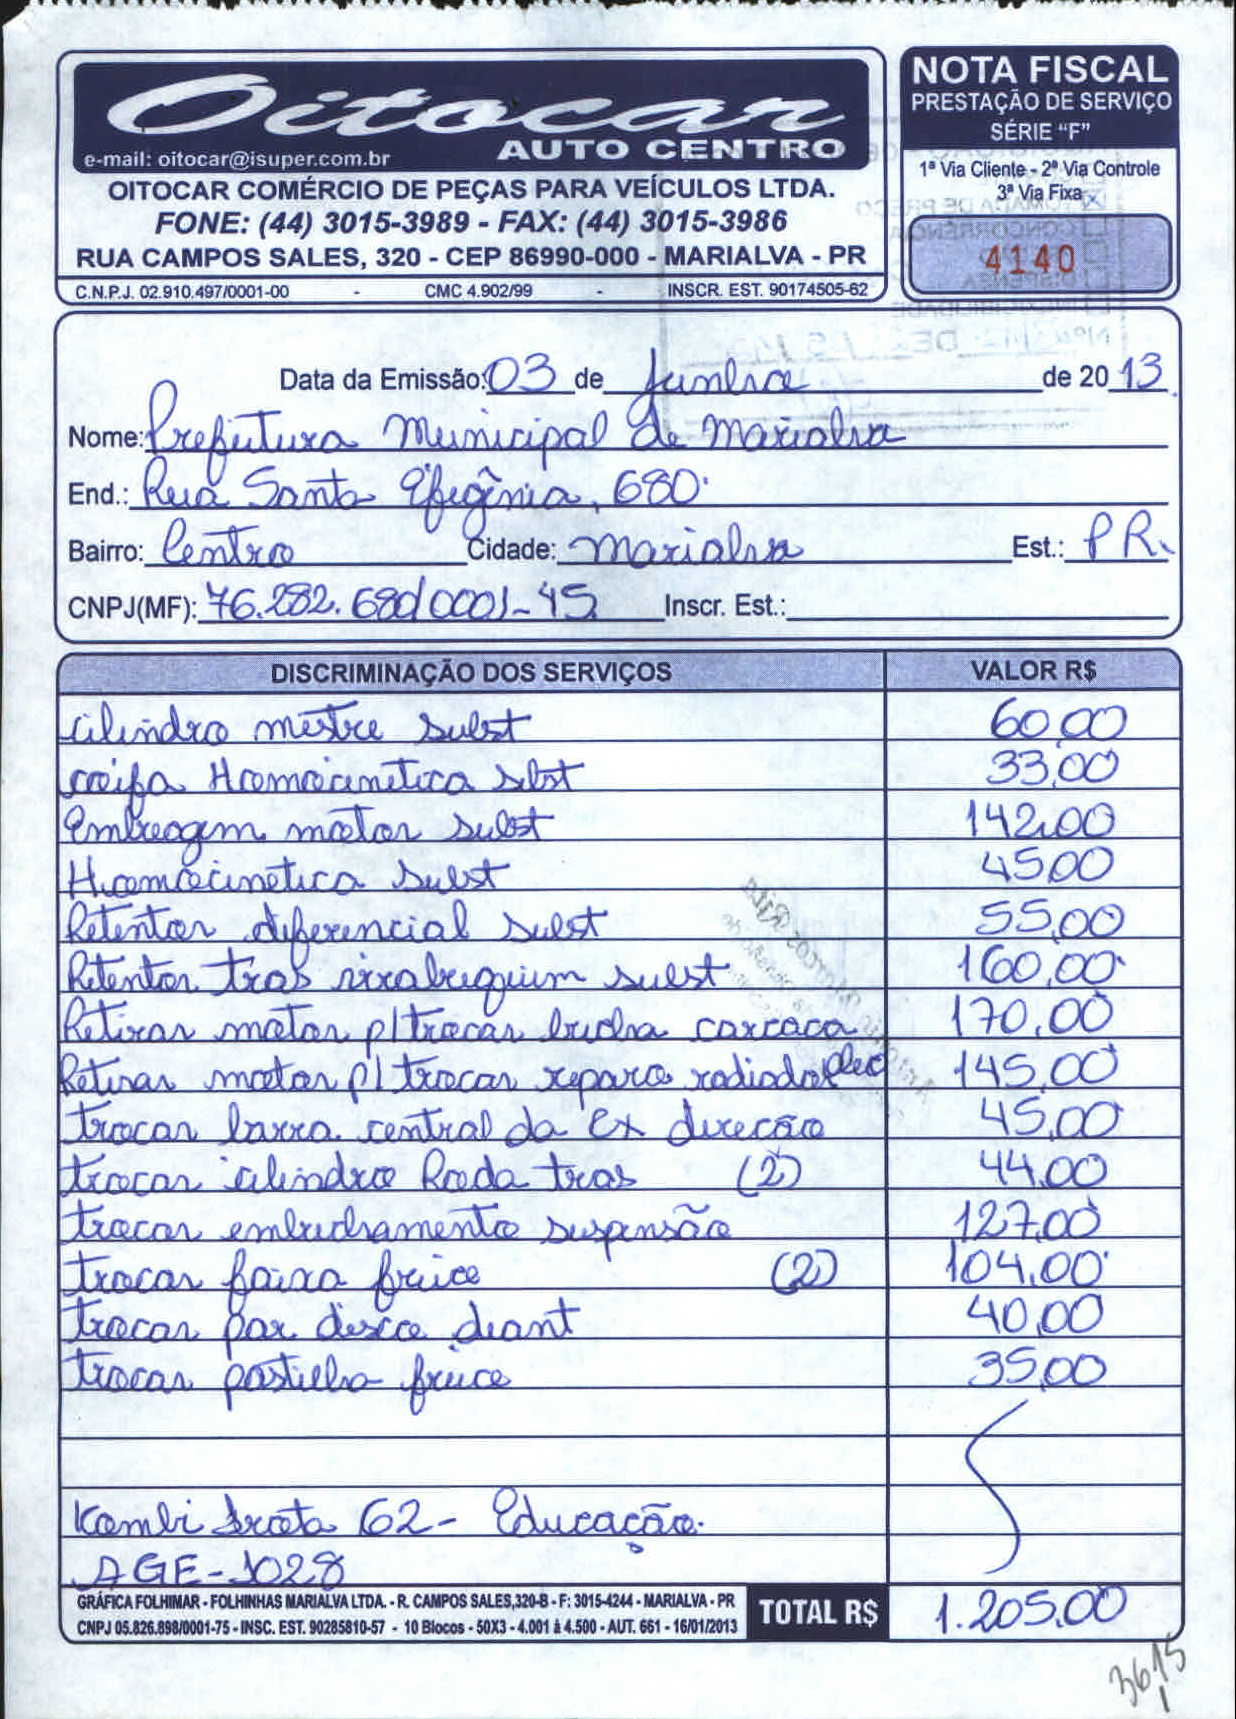 Oitocar
AUTO CENTRO
e-mail: oitocar@isuper.com.br
OITOCAR COMÉRCIO DE PEÇAS PARA VEÍCULOS LTDA.
FONE: (44) 3015-3989 - FAX: (44) 3015-3986
RUA CAMPOS SALES, 320 - CEP 86990-000 - MARIALVA - PR
C.N.P.J. 02.910.497/0001-00 - CMC 4.902/99 - INSCR. EST. 90174505-62
NOTA FISCAL
PRESTAÇÃO DE SERVIÇO
SÉRIE "F"
1ª Via Cliente - 2ª Via Controle
3ª Via Fixa
4140
Data da Emissão: 03 de Junho de 2013
Nome: Prefeitura Municipal de Marialva
End.: Rua Santa Efigênia, 680
Bairro: Centro Cidade: Marialva Est.: PR.
CNPJ(MF): 76.282.680/0001-45 Inscr. Est.:
DISCRIMINAÇÃO DOS SERVIÇOS VALOR R$
cilindro mestre subst 60,00
coifa Homocinetica sbst 33,00
Embreagem motor subst 142,00
Homocinetica subst 45,00
Retentor diferencial subst 55,00
Retentor tras virabrequim subst 160,00
Retirar motor p/ trocar bucha carcaca 170,00
Retirar motor p/ trocar reparo radiador oleo 145,00
trocar barra central da cx direcão 45,00
trocar cilindro Roda tras (2) 44,00
trocar embuchamento suspensão 127,00
trocar faixa freice (2) 104,00
trocar par disco diant 40,00
trocar pastilha freice 35,00
Kombi frota 62 - Educação.
AGE-1028
GRÁFICA FOLHIMAR - FOLHINHAS MARIALVA LTDA. - R. CAMPOS SALES,320-B - F: 3015-4244 - MARIALVA - PR
CNPJ 05.826.898/0001-75 - INSC. EST. 90285810-57 - 10 Blocos - 50X3 - 4.001 à 4.500 - AUT. 661 - 16/01/2013
TOTAL R$ 1.205,00